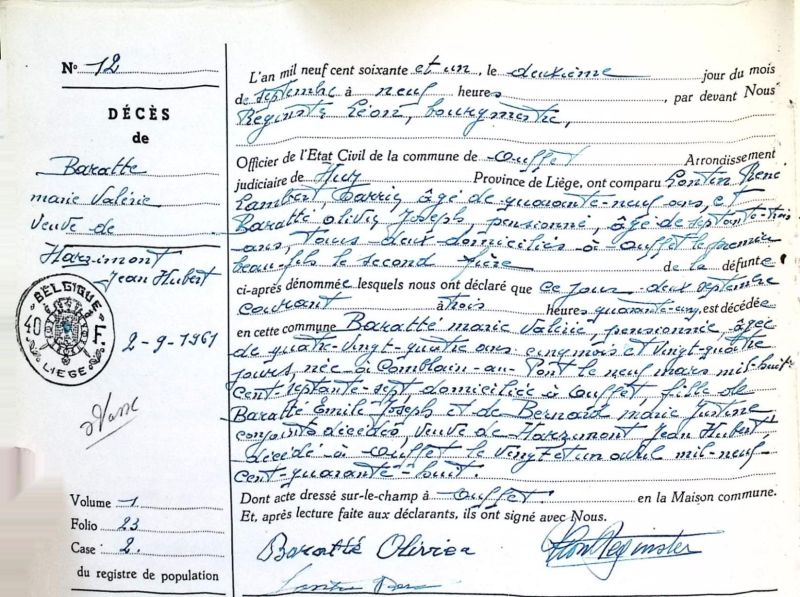 N° 12
DÉCÈS
de
Baratte
marie Valérie
veuve de
Harzimont
Jean Hubert
BELGIQUE
40 F
LIEGE
2-9-1961
Volume 1
Folio 23
Case 2.
du registre de population
L'an mil neuf cent soixante et un, le deuxième jour du mois
de septembre à neuf heures, par devant Nous
Reginster Léon, bourgmestre,
Officier de l'Etat Civil de la commune de Ouffet Arrondissement
judiciaire de Huy Province de Liège, ont comparu Lontin René
Lambert, Carrier, âgé de quarante-neuf ans, et
Baratté Olivier Joseph, pensionné, âgé de septante-trois
ans, tous deux domiciliés à Ouffet le premier
beau-fils le second frère de la défunte
ci-après dénommée lesquels nous ont déclaré que ce jour deux septembre
courant à trois heures quarante-cinq, est décédée
en cette commune Baratté marie Valérie, pensionnée, âgée
de quatre-vingt-quatre ans cinq mois et vingt-quatre
jours, née à Comblain-au-Pont le neuf mars mil-huit-
cent-septante-sept domiciliée à Ouffet, fille de
Baratté Emile Joseph et de Bernard marie Justine
conjoints décédés, veuve de Harzimont Jean Hubert
décédé à Ouffet le vingt et un avril mil-neuf-
cent-quarante-huit.
Dont acte dressé sur-le-champ à Ouffet en la Maison commune.
Et, après lecture faite aux déclarants, ils ont signé avec Nous.
Baratté Olivier Léon Reginster